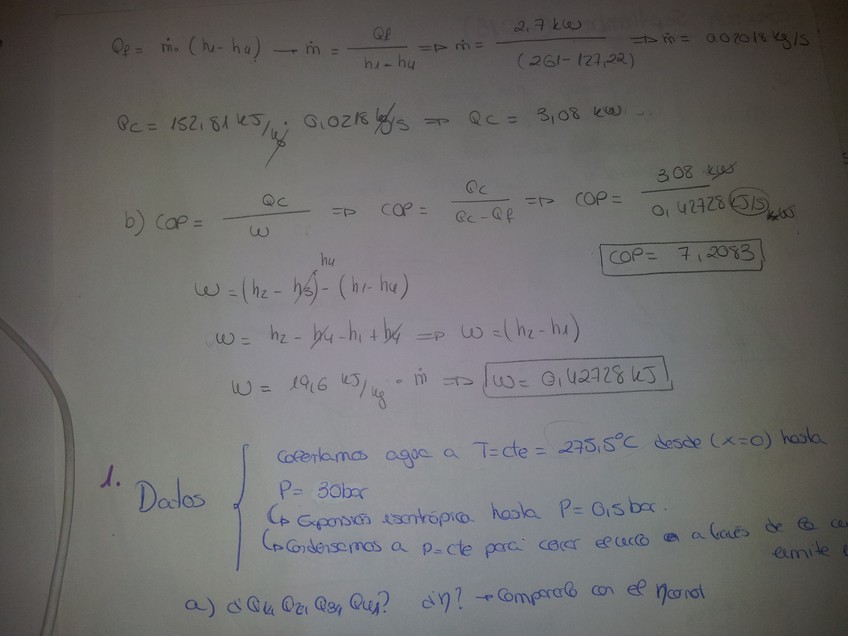 Qf = ṁ · (h1 - h4) → ṁ = Qf / h1 - h4 ⇒ ṁ = 2,7 kW / (261 - 127,22) ⇒ ṁ = 0,02018 kg/s
Qc = 152,81 kJ/kg · 0,0218 kg/s ⇒ Qc = 3,08 kW
b) COP = Qc / W ⇒ COP = Qc / Qc - Qf ⇒ COP = 3,08 kW / 0,42728 kJ/s kW
COP = 7,2083
h4
W = (h2 - h3) - (h1 - h4)
W = h2 - h4 - h1 + h4 ⇒ W = (h2 - h1)
W = 19,6 kJ/kg · ṁ ⇒ W = 0,42728 kJ
1. Datos
calentamos agua a T = cte = 275,5°C desde (x=0) hasta
P = 30bar
↳ Expansión isentrópica hasta P = 0,5 bar.
↳ Condensamos a p = cte para cerar el ciclo a través de
a) ¿Q Q Q Q ? ¿η? → Compararlo con el ηcarnot